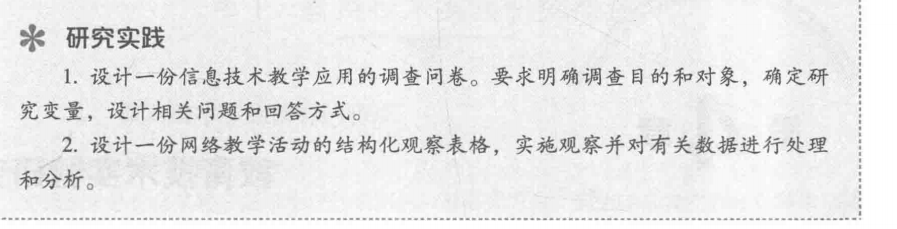 研究实践
1. 设计一份信息技术教学应用的调查问卷。要求明确调查目的和对象，确定研
究变量，设计相关问题和回答方式。
2. 设计一份网络教学活动的结构化观察表格，实施观察并对有关数据进行处理
和分析。